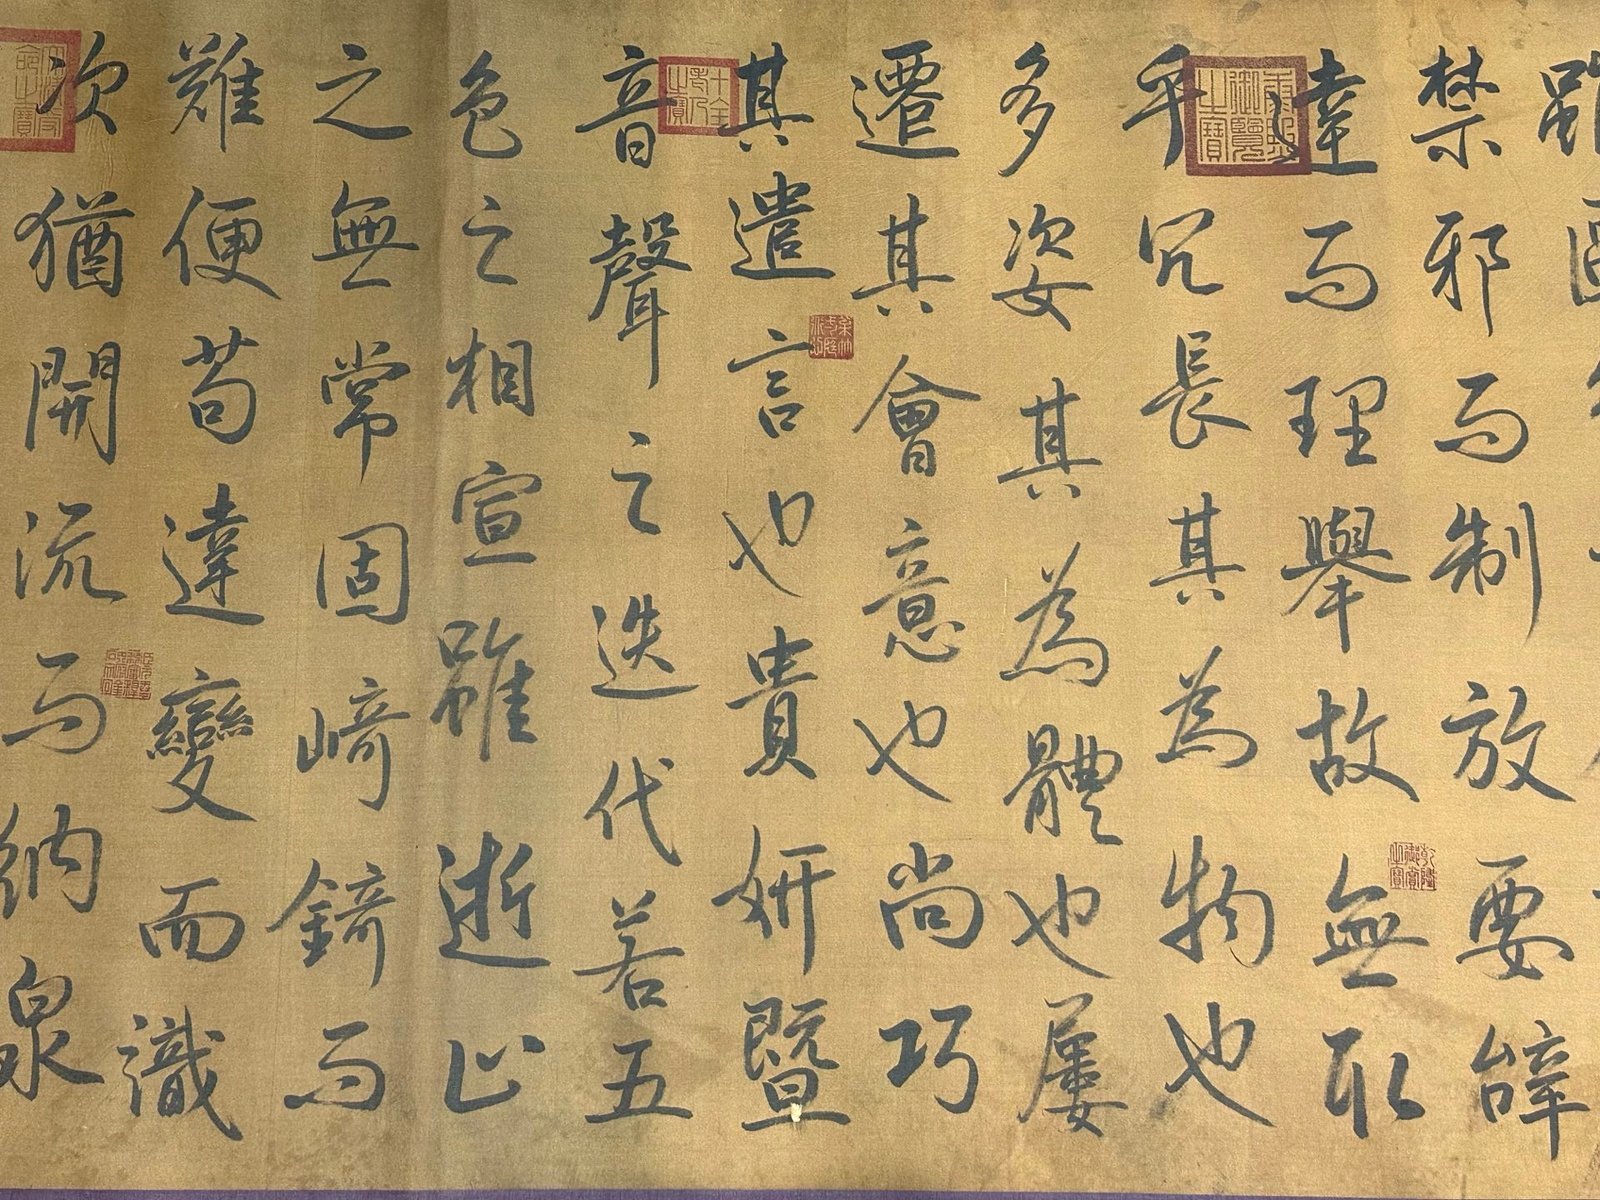 雖區
禁邪而制放要辭
達而理舉故無取
乎冗長其為物也
多姿其為體也屢
遷其會意也尚巧
其遣言也貴妍暨
音聲之迭代若五
色之相宣雖逝止
之無常固崎錡而
難便苟達變而識
次猶開流而納泉
十全老人之寶